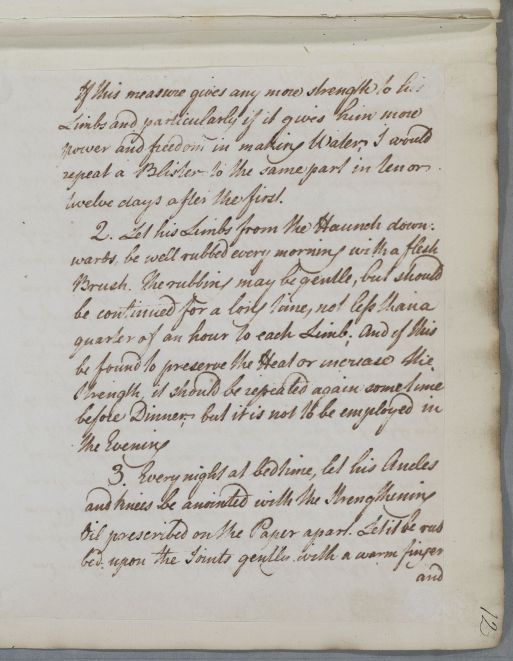 If this measure gives any more strength to his
Limbs and particularly if it gives him more
power and freedom in making Water, I would
repeat a Blister to the same part in ten or
twelve days after the first.
2. Let his Limbs from the Haunch down-
wards, be well rubbed every morning with a flesh
Brush. The rubbing may be gentle, but should
be continued for a long time, not less than a
quarter of an hour to each Limb; And if this
be found to preserve the Heat or increase the
Strength, it should be repeated again some time
before Dinner, but it is not to be employed in
the Evening
3. Every night at bedtime, let his Ancles
and knees be anointed with the Strengthening
Oil prescribed on the Paper apart. Let it be rub
bed upon the Joints gently with a warm finger
and
12